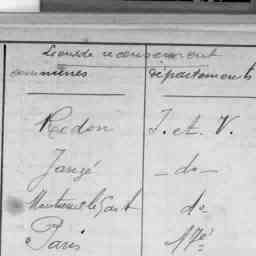 Lieu de recensement
communes départements
Redon I. et V.
Janzé - do -
Montreuil le Gast do
Paris 17e